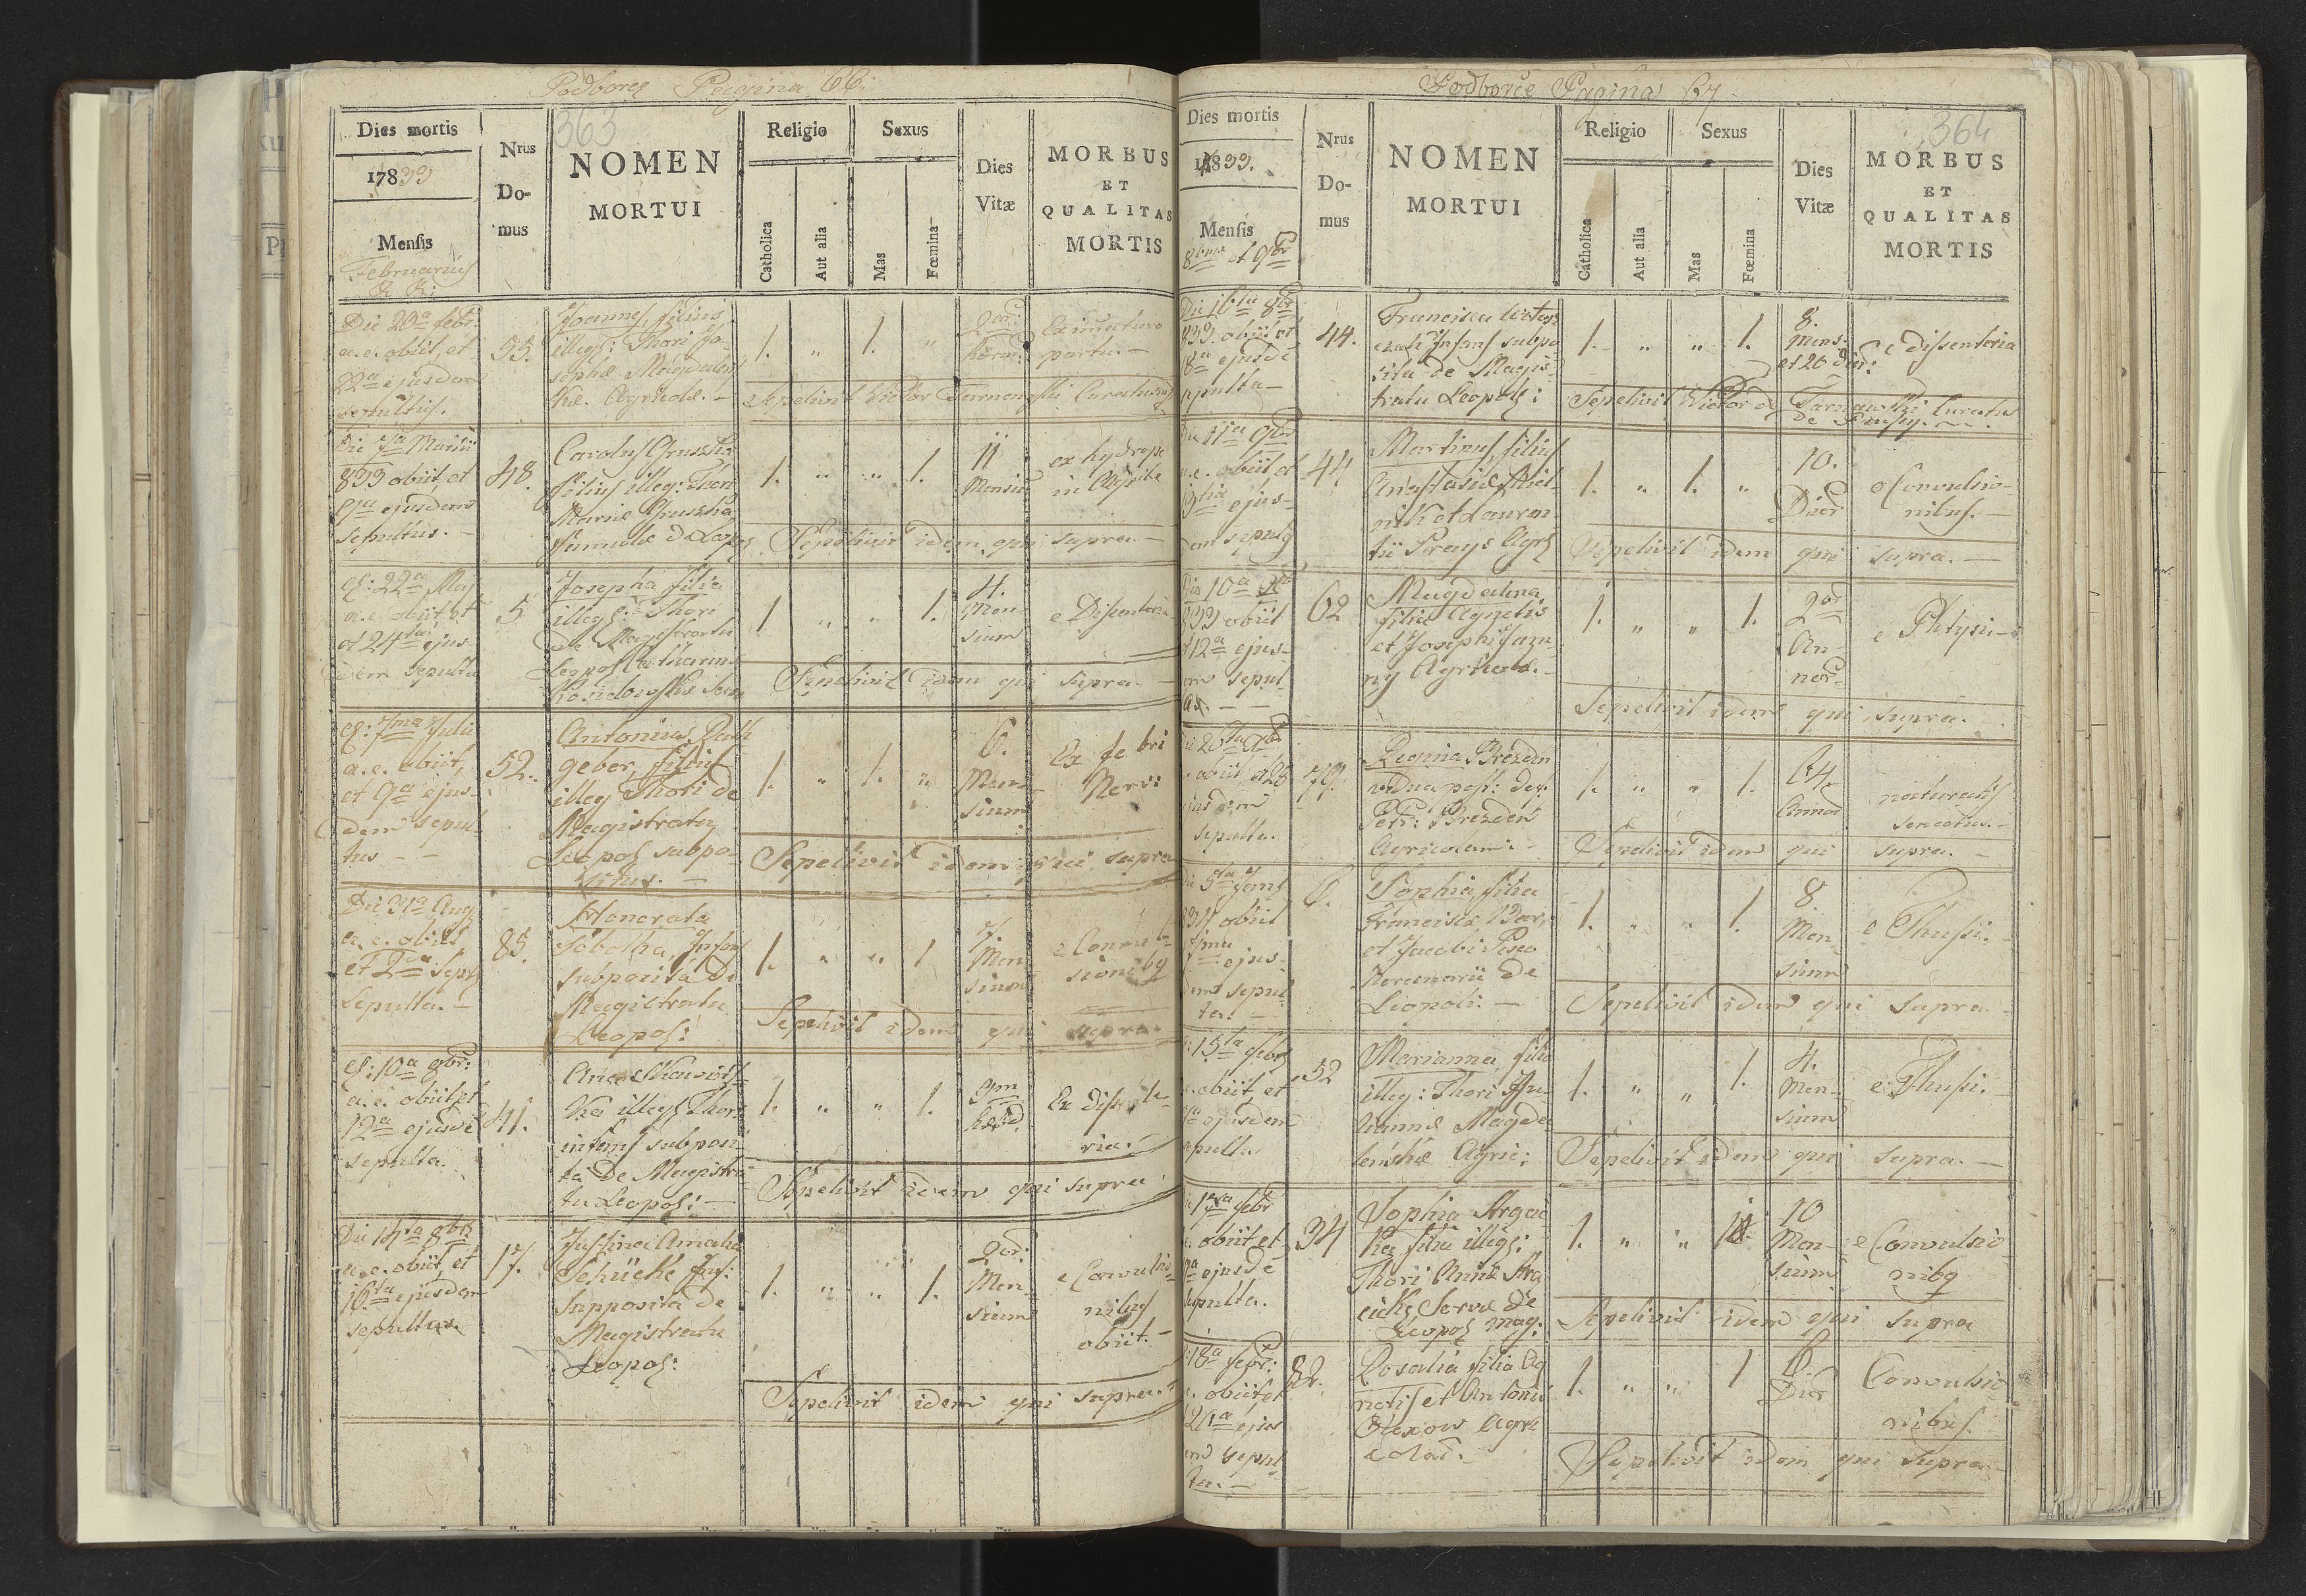 Podborce Pagina 66.
363
Dies mortis
1783 33
Mensis
Februarius
Nrus
Do-
mus
NOMEN
MORTUI
Religio
Catholica
Aut alia
Sexus
Mas
Fœmina
Dies
Vitæ
MORBUS
ET
QUALITAS
MORTIS
Die 20a febr:
a.c. obiit, et
22a ejusdem
sepultus.
55.
Joannes filius
illeg: Thori Jo-
sephæ Magdalens
kæ. Agricolæ. —
1. „ 1. „
2ar:
horar:
Ex imaturo
partu. —
Sepelivit Victor Tarnawski Curatus
Die 7a Martii
833 obiit, et
9a ejusdem
sepultus. —
48.
Carolus Gruszka
filius illeg: Thori
Mariæ Gruszka
famulæ de Leopol
1. „ „ 1.
11
Mensium
ex hydrope
in Capite
Sepelivit idem qui supra. —
d: 22a Maj
a.c. obiit, et
et 24ta ejus-
dem sepulta
5
Josepha filia
illeg: Thori
de Magistratu
Leopol Catharinæ
1 „ „ 1.
4.
Men
sium
e Dissenteria
Sepelivit idem qui supra. —
d: 7ma Julii
a.c. obiit,
et 9a ejus-
dem sepul-
tus — —
52.
Antonius Rath
geber, filius
illeg Thori de
Magistratu
Leopol subpo-
situs. —
1. „ 1. „
6.
Men-
sium
Ex febri
Nervi
Sepelivit idem qui supra
Die 31a Aug
a.c. obiit
et 2da Sept
Sepulta. —
85.
Honorata
Sobotka, Infans
subposita de
Magistratu
Leopol:
1. „ „ 1
7.
Men
sium
e Convul-
sionibq
Sepelivit idem qui supra.
d: 10a 8br:
a.c. obiit et
12a ejusde
sepulta.
41.
illeg Thori
infans subposi
ta de Magistra
tu Leopol: —
1. „ „ 1.
Ex dissente-
ria.
Sepelivit idem qui supra
Die 14ta 8bris
a.c. obiit, et
16ta ejusdem
sepultus.
17.
Justina Amalia
Schücke Inf:
Supposita de
Magistratu
Leopol:
1. „ „ 1.
2or:
Men-
sium
e Convulsio-
nibus
obiit. —
Sepelivit idem qui supra.
Podborce Pagina 67
364
Dies mortis
1833.
Mensis
8bris et 9br
Nrus
Do-
mus
NOMEN
MORTUI
Religio
Catholica
Aut alia
Sexus
Mas
Fœmina
Dies
Vitæ
MORBUS
ET
QUALITAS
MORTIS
Die 16ta 8br
833. obiit et
18a ejusde
sepulta —
44.
Francisca
Infans subpo
sita de Magis-
tratu Leopol:
1. „ „ 1.
8.
Mens:
et 26 Dier:
e dissenteria
Sepelivit Victor Tarnawski Curatus
Die 11a 9br
a.c. obiit et
13tia ejus-
dem sepultq
44
Martinus filius
Anastasiæ
et Lauren
tii Agri
1. „ 1. „
10.
Dier
e Convulsio-
nibus. —
Sepelivit idem qui supra. —
Die 10a
833 obiit
et 12a ejus-
dem sepul
ta. — —
62
Magdalena
filia Agnetis
et Josephi Jaza
ny Agricolæ. —
1. „ „ 1.
2or
An-
nor.
e Phtysi —
Sepelivit idem qui supra.
obiit, et 28
ejusdem
sepulta.
79.
Regina Brezden
vidua post: def.
Petr: Brezden
Agricolam. —
1. „ „ 1.
64
Annor
naturalis
senectus. —
Sepelivit idem qui supra. —
Die 5ta Jan
834 obiit
7ma ejus-
dem sepul
ta. —
6.
Sophia filia
Franciscæ
et Jacobi
Mercenarii de
Leopoli. —
1. „ „ 1.
8
Men-
sium
e Thussi.
Sepelivit idem qui supra. —
15ta febr
a.c. obiit, et
ejusdem
sepulta
52
Marianna filia
illeg: Thori Ju-
liannæ Magda
lenskæ Agric:
1. „ „ 1.
4.
Men-
sium
e Thussi. —
Sepelivit idem qui supra. —
17a febr
a.c. obiit et
ejusde
sepulta.
34
Sophia
filia illeg:
Thori Annæ
Servæ de
Leopol mag:
1. „ „ 1.
10
Men-
sium
e Convulsio-
nibq
Sepelivit idem qui supra
18a febr:
a.c. obiit et
20a ejus
dem sepul
ta. —
82.
Rosalia filia Ag
netis et Antonii
Olexow Agri
colar. —
1. „ „ 1
6
Dier
Convulsio
nibus.
Sepelivit idem qui supra —